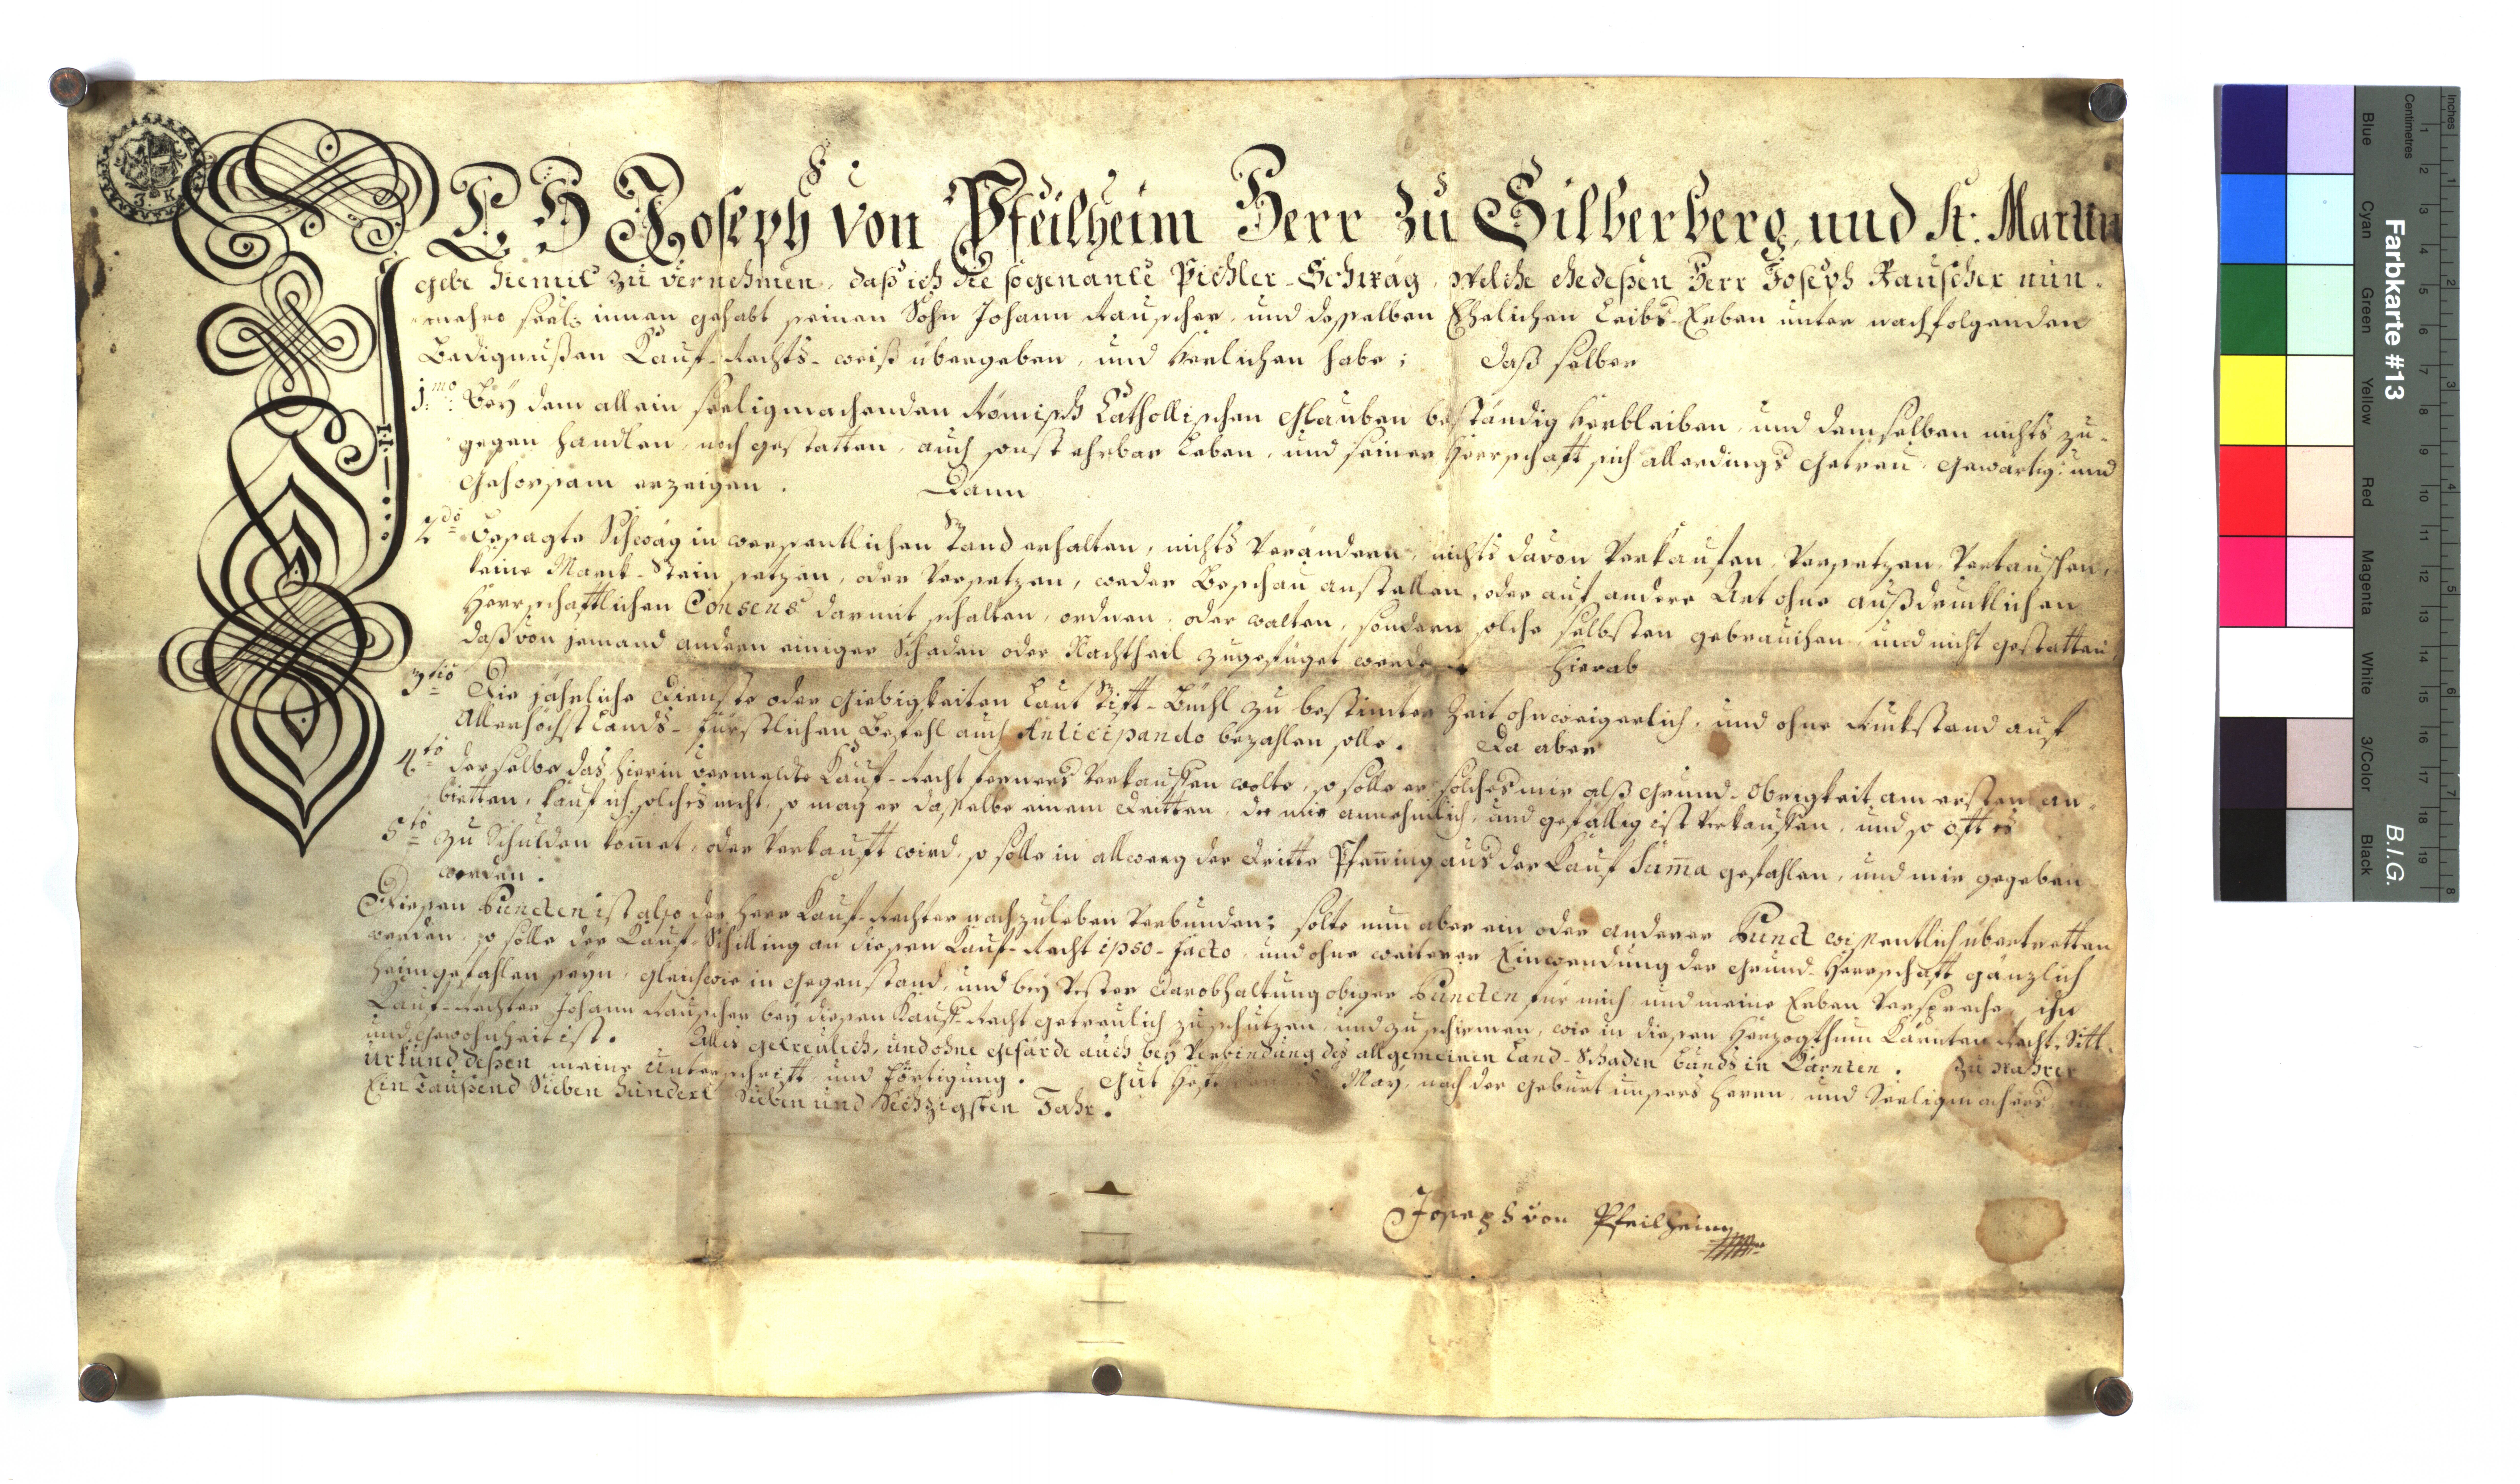 ICH Joseph von Pfeilheim Herr zu Silberberg, und St: Martin
gebe hiemit zu vernehmen, daß ich die sogenante Pichler-Schwäg, welche ehedeßen Herr Joseph Rauscher nun-
mehro seel: innen gehabt seinen Sohn Johann Rauscher, und desselben Ehelichen Leibs-Erben unter nachfolgenden
Bedignußen Kauf-Rechts-weiß übergeben, und verlichen habe; daß selber
1mo Bey dem allein seeligmachenden Römisch Catholischen Glauben beständig verbleiben, und demselben nichts zu-
gegen handlen, noch gestatten, auch sonst ehrbar Leben, und seiner Herrschafft sich allerdings Getreu, Gewärtig: und
Gehorsam erzeigen. Dann
2do Besagte Schwäg in wesentlichen Stand erhalten, nichts verändern, nichts davon verkaufen, versetzen, vertauschen,
keine Marck-Stein setzen, oder versetzen, weder Beschau anstellen, oder auf andere Art ohne außdrucklichen
Herrschafftlichen Consens darmit schalten, ordnen, oder walten, sondern solche selbsten gebrauchen, und nicht gestatten
daß von jemand andern einiger Schaden oder Nachtheil zugefüget werde. Hierab
3tio Die jährliche Dienste oder Giebigkeiten Laut Stift-Büchl zu bestimter Zeit ohnweigerlich, und ohne Ruckstand auf
Allerhöchst Lands-fürstlichen Befehl auch Anticipando bezahlen solle. Da aber
4to derselbe das hierin vermeldte Kauf-Recht ferners verkauffen wolte, so solle er solches mir alß Grund-Obrigkeit am ersten an-
bietten, kauf ich solches nicht, so mag er dasselbe einem Dritten, der mir annehmlich, und gefällig ist verkauffen, und so oft es
5to zu Schulden komet, oder verkaufft wird, so solle in allweeg der Dritte Pfening aus der Kauf Suma gefahlen, und mir gegeben
werden.
Diesen Puncten ist also der Herr Kauf-Rechter nachzuleben verbunden; solte nun aber ein oder anderer Punct wissentlich übertretten
werden, so solle der Kauf-Schilling an diesen Kauf-Recht ipso-facto, und ohne weiterer Einwendung der Grund-Herrschafft gänzlich
heimgefahlen seyn, gleichwie in Gegenstand, und bey vester Darobhaltung obiger Puncten für mich, und meine Erben verspreche, ihn
Kauf-Rechter Johann Rauscher bey diesen Kauf-Recht getreulich zu schutzen, und zu schirmen, wie in diesen Herzogthum Kärnten Recht, Sitt-
und Gewohnheit ist. Alles getreulich, und ohne Gefärde auch bey Verbindung des allgemeinen Land-Schaden bunds in Kärnten. Zu wahrer
Urkund deßen meine Unterschrifft und Förtigung. Gut May, nach der Geburt unsers Herrn, und Seeligmachers
Ein Taußend Sieben hundert Sieben und Sechzigsten Jahr.
Joseph von Pfeilheim
Farbkarte #13
B.I.G.
Inches
Centimetres
Blue
Cyan
Green
Yellow
Red
Magenta
White
3/Color
Black
1 2 3 4 5 6 7 8 9 10 11 12 13 14 15 16 17 18 19
1 2 3 4 5 6 7 8